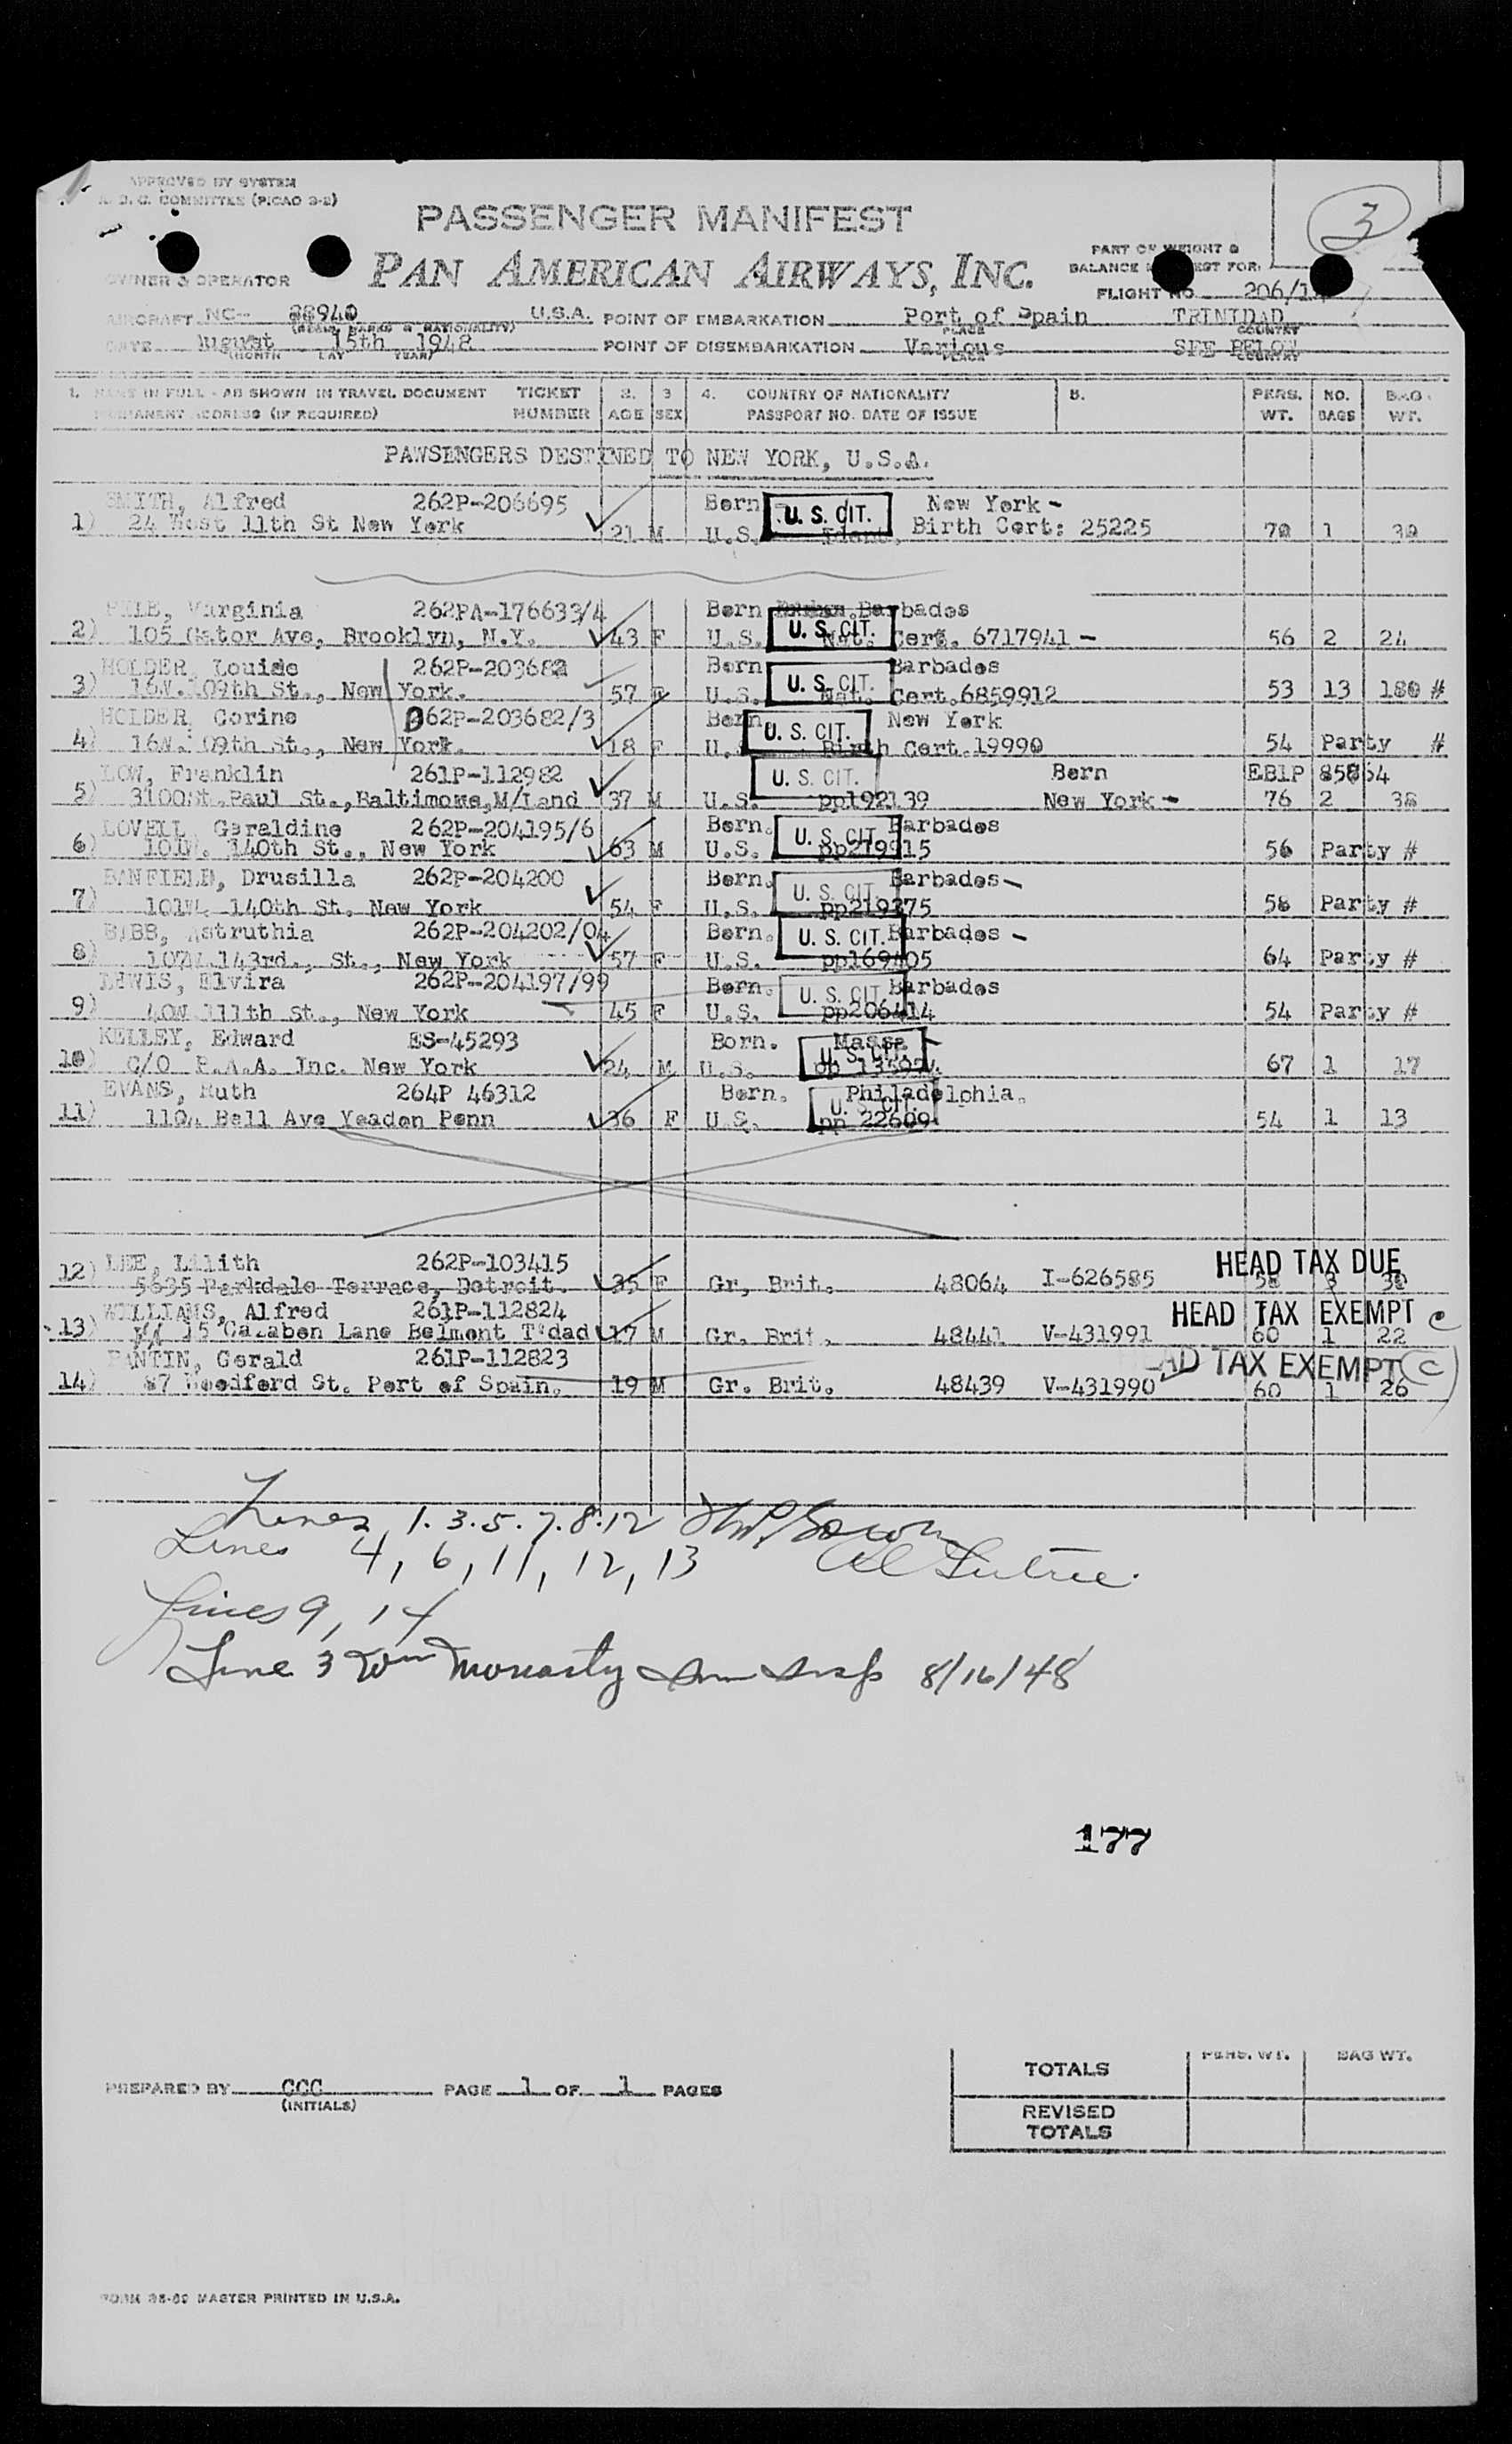 APPROVED BY SYSTEM
COMMITTEE (PICAO 3-2)
3
PASSENGER MANIFEST
PAN AMERICAN AIRWAYS, INC.
PART OF WEIGHT &
BALANCE MANIFEST FOR:
OWNER & OPERATOR
FLIGHT NO. 206/
AIRCRAFT NC- 88940 U.S.A. POINT OF EMBARKATION Port of Spain TRINIDAD
(REGIS. MARKS & NATIONALITY) PLACE COUNTRY
DATE August 15th 1948 POINT OF DISEMBARKATION Various SEE BELOW
(MONTH DAY YEAR) PLACE COUNTRY
1. NAME IN FULL - AS SHOWN IN TRAVEL DOCUMENT TICKET 2. 3 4. COUNTRY OF NATIONALITY 5. PERS. NO. BAG.
PERMANENT ADDRESS (IF REQUIRED) NUMBER AGE SEX PASSPORT NO. DATE OF ISSUE WT. BAGS WT.
PAWSENGERS DESTINED TO NEW YORK, U.S.A.
SMITH, Alfred 262P-206695 Born U. S. CIT. New York -
1) 24 West 11th St New York 21 M U.S. Birth Cert: 25225 70 1
Virginia 262PA-176633/4 Born Barbados
2) 105 Ave, Brooklyn, N.Y. 43 F U.S. U. S. CIT. Nat. Cert. 6717941 - 56 2 24
HOLDER, Louise 262P-203682 Born Barbados
3) 16W. 109th St., New York. 57 F U.S. U. S. CIT. Nat. Cert. 6859912 53 13 180 #
HOLDER, Corine 262P-203682/3 Born New York
4) 16W. 109th St., New York. 18 F U.S. U. S. CIT. Birth Cert. 19990 54 Party #
LOW, Franklin 261P-112982 U. S. CIT. Born EB1P
5) 3100St. Paul St., Baltimore, M/Land 37 M U.S. pp192139 New York - 76 2 38
LOVELL, Geraldine 262P-204195/6 Born. U. S. CIT. Barbados
6) 101W. 140th St., New York 63 M U.S. pp219915 56 Party #
BANFIELD, Drusilla 262P-204200 Born. U. S. CIT. Barbados-
7) 101W. 140th St. New York 54 F U.S. 58 Party #
Astruthia 262P-204202/04 Born. U. S. CIT. Barbados -
8) 107W 143rd., St., New York 57 F U.S. pp169405 64 Party #
LEWIS, Elvira 262P-204197/99 Born. U. S. CIT. Barbados
9) 40W 111th St., New York 45 F U.S. pp206414 54 Party #
KELLEY, Edward ES-45293 Born. Masss
10) C/O P.A.A. Inc. New York 24 M U.S. U. S. CIT. 67 1 17
EVANS, Ruth 264P 46312 Born. Philadelphia.
11) Bell Ave Yeadon Penn 36 F U.S. U. S. CIT. pp 22609 54 1 13
HEAD TAX DUE
12) LEE, Lilith 262P-103415
5635 Parkdale Terrace, Detroit. 35 F Gr, Brit. 48064 I-626585 58 3 30
WILLIAMS, Alfred 261P-112824 HEAD TAX EXEMPT c
13) 15 Cazabon Lane Belmont T'dad 17 M Gr. Brit. 48441 V-431991 60 1 22
PANTIN, Gerald 261P-112823 HEAD TAX EXEMPT c
14) 87 Woodford St. Port of Spain. 19 M Gr. Brit. 48439 V-431990 60 1 26
Lines 1. 3. 5. 7. 8. 12
Lines 4, 6, 11, 12, 13
Lines 9, 14
Line 3 Wm Moriarty Imm Insp 8/16/48
177
TOTALS PERS. WT. BAG WT.
PREPARED BY CCC PAGE 1 OF 1 PAGES
(INITIALS)
REVISED
TOTALS
MASTER PRINTED IN U.S.A.